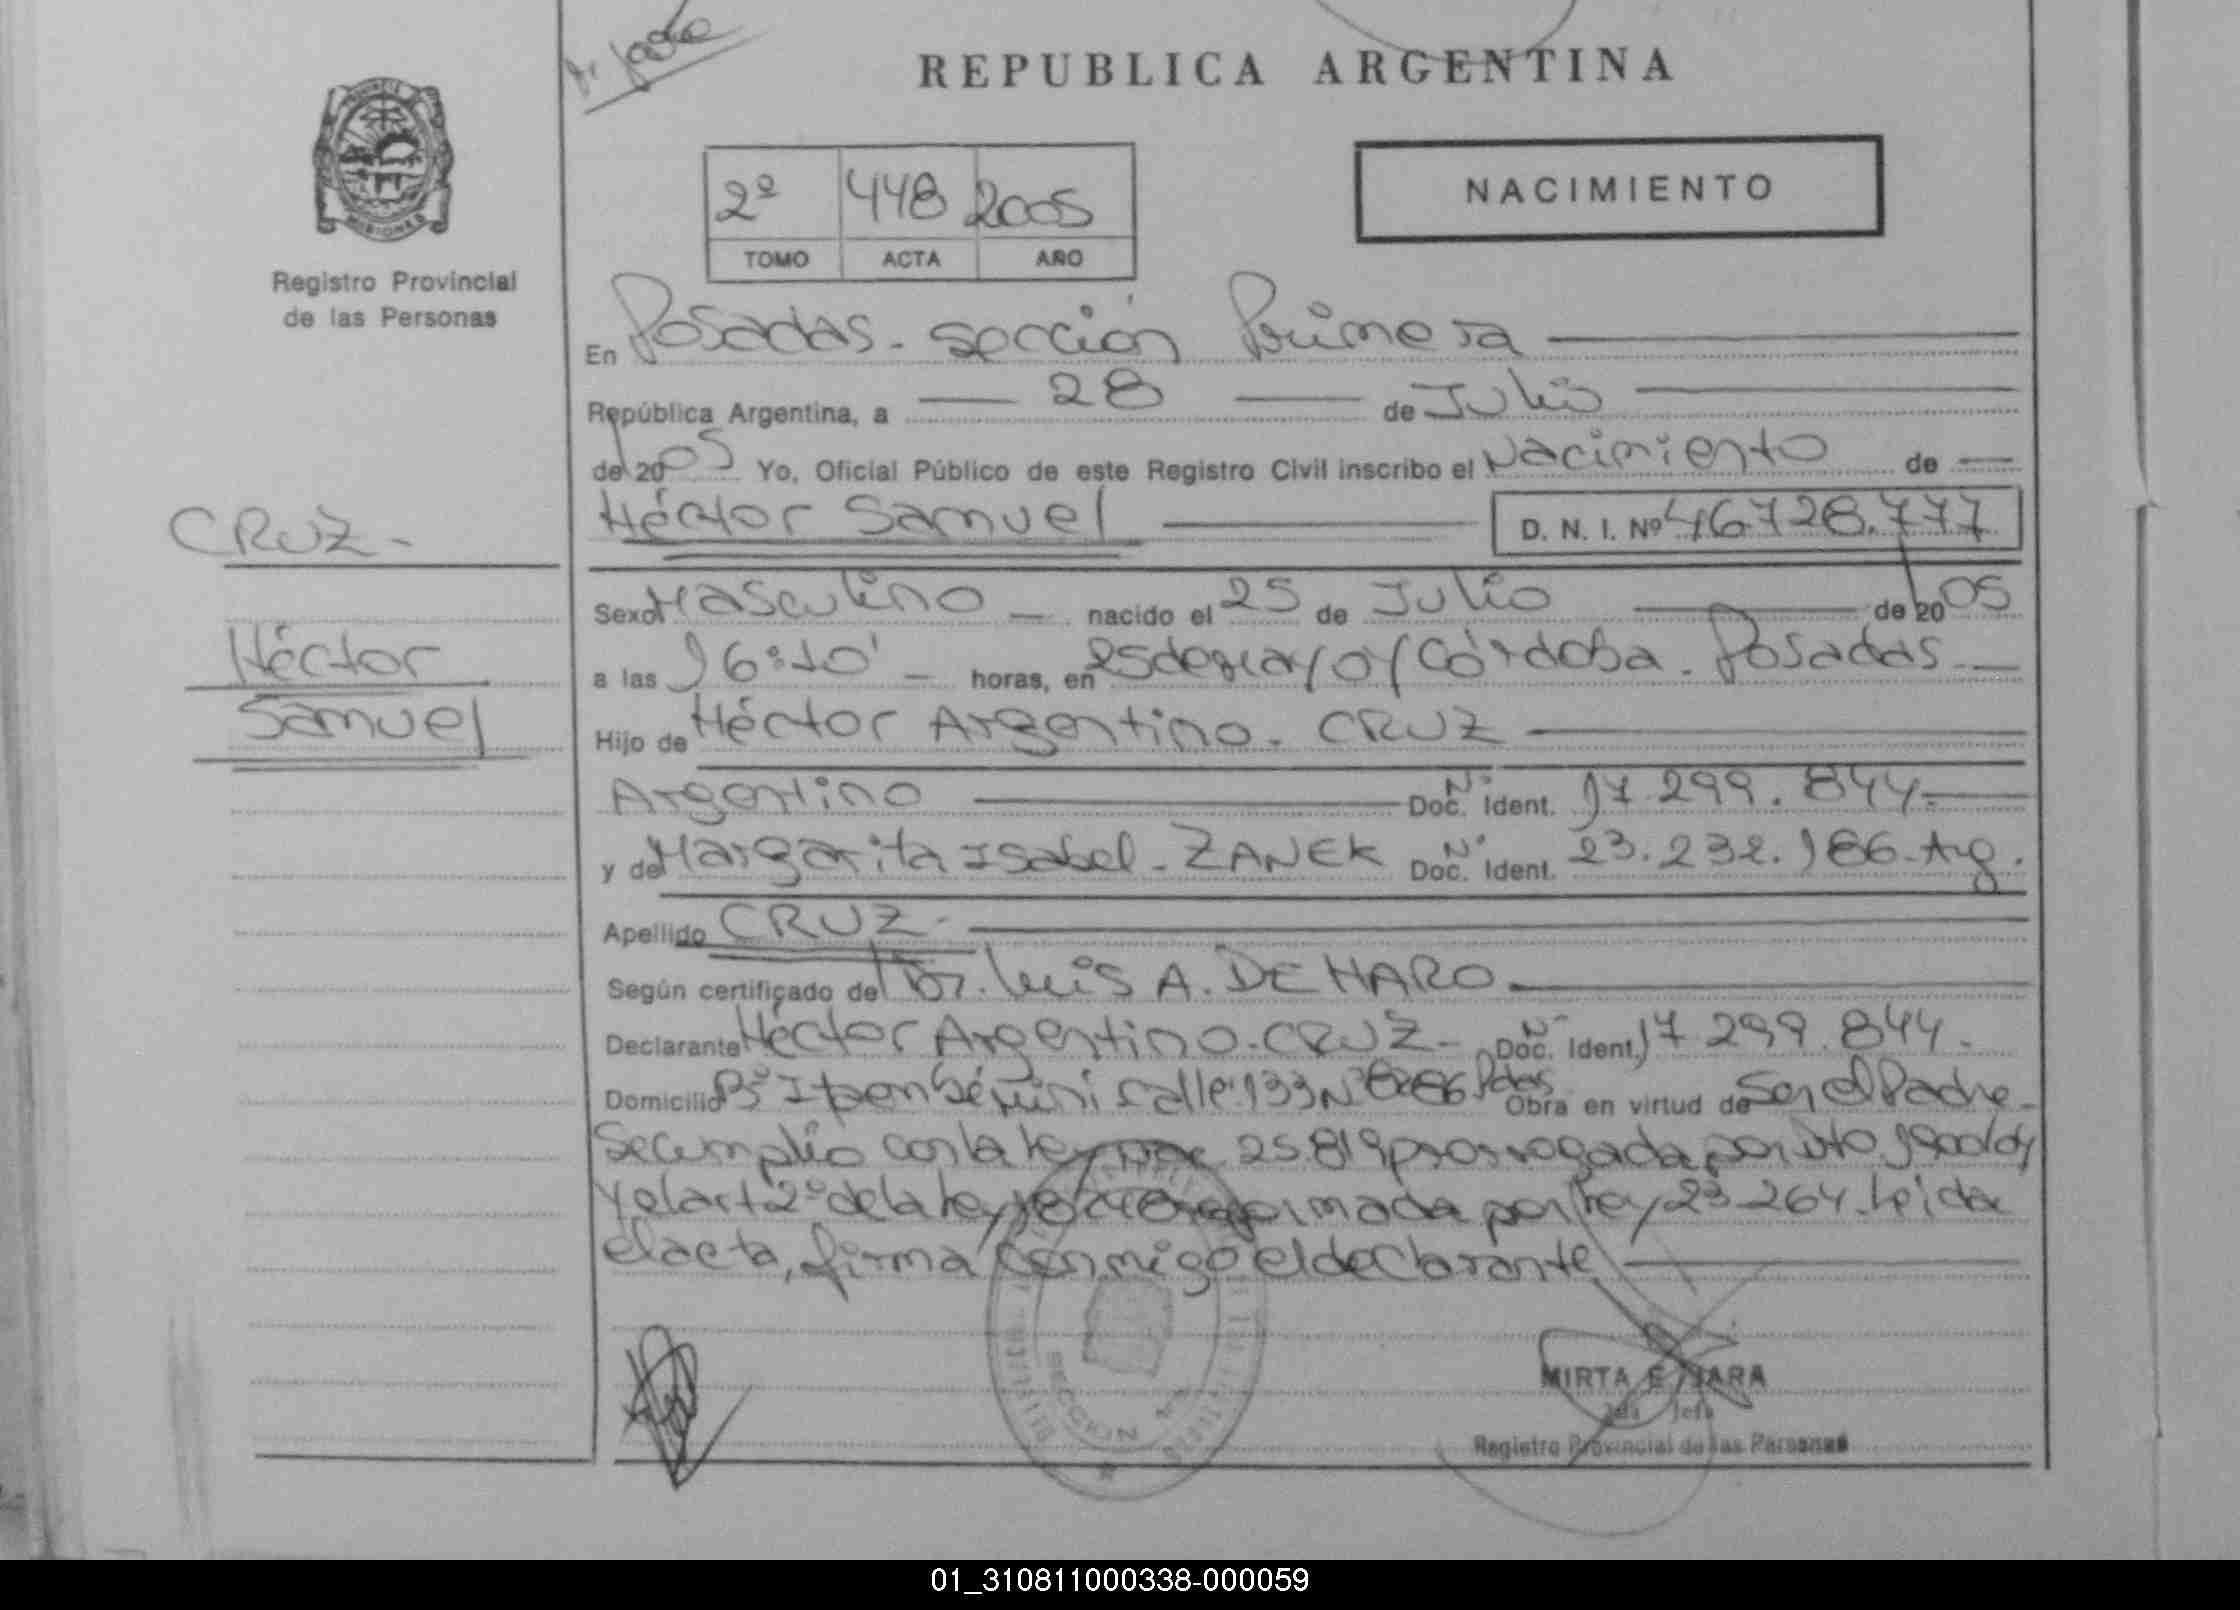 REPUBLICA ARGENTINA
NACIMIENTO
2º 448 2005
TOMO ACTA AÑO
MISIONES
Registro Provincial
de las Personas
En Posadas - sección Primera
República Argentina, a 28 de Julio
de 2005 Yo, Oficial Público de este Registro Civil inscribo el Nacimiento de
CRUZ -
Héctor Samuel D. N. I. Nº 46728.777
Sexo Masculino nacido el 25 de Julio de 2005
Héctor
Samuel
a las 16:10' horas, en 25 de Mayo / Córdoba - Posadas
Hijo de Héctor Argentino - CRUZ
Argentino Doc. Nº Ident. 17.299.844.
y de Margarita Isabel - ZANEK Doc. Nº Ident. 23.232.186 - Arg.
Apellido CRUZ -
Según certificado del Dr. Luis A. DE HARO
Declarante Héctor Argentino - CRUZ - Doc. Nº Ident. 17 299.844.
Domicilio Bº Itaembé Miní calle 133 Nº Pdas Obra en virtud de Ser el Padre -
Se cumplio con la Ley 25.819 prorrogada por
y el art 2º de la Ley por Ley 23.264. Leida
el acta, firma conmigo el declarante
SECCION
MIRTA E. JARA
Jefa
Registro Provincial de las Personas
01_310811000338-000059